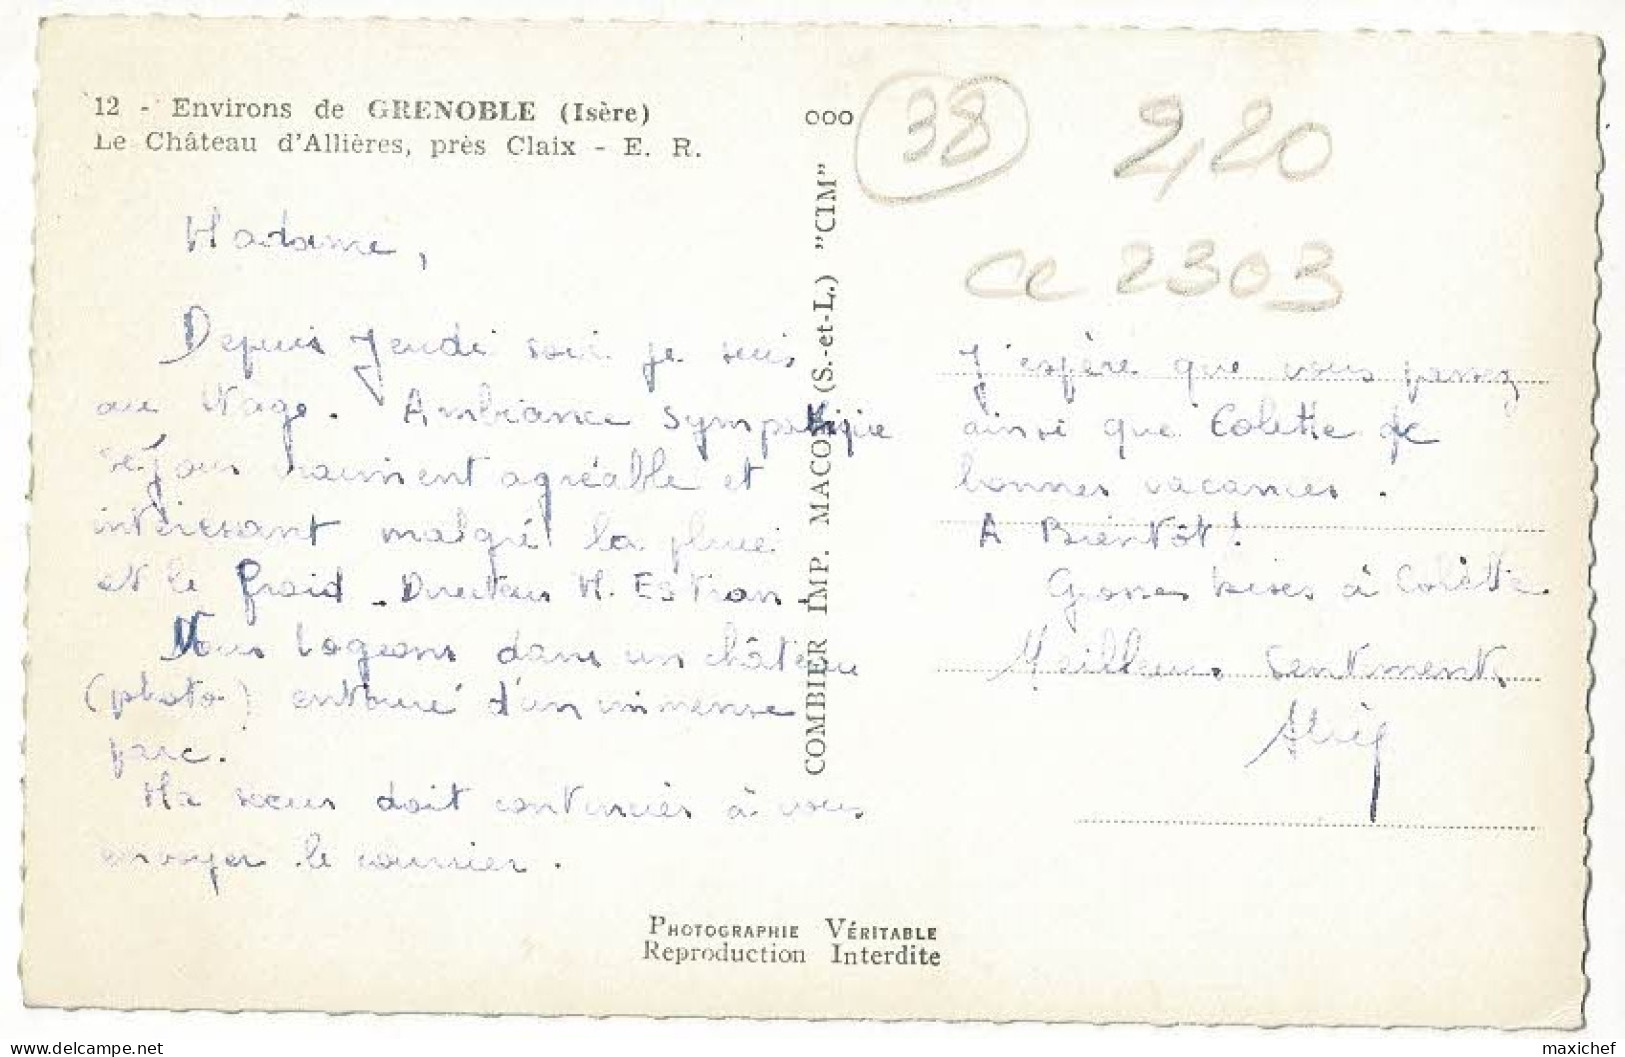 12 - Environs de GRENOBLE (Isère)
Le Château d'Allières, près Claix - E. R.
Madame,
Depuis Jeudi soir je suis
au stage. Ambiance sympathique
séjour vraiment agréable et
intéressant malgré la pluie
et le froid. Directeur M.
Nous logeons dans un château
(photo) entouré d'un immense
parc.
Ma soeur doit continuer à vous
envoyer le courrier.
COMBIER IMP. MACON (S.-et-L.) "CIM"
38
2,20
CC 2303
J'espère que vous passez
ainsi que Colette de
bonnes vacances.
A Bientôt!
Grosses bises à Colette
Meilleurs Sentiments
PHOTOGRAPHIE VÉRITABLE
Reproduction Interdite
maxichef.delcampe.net
maxichef